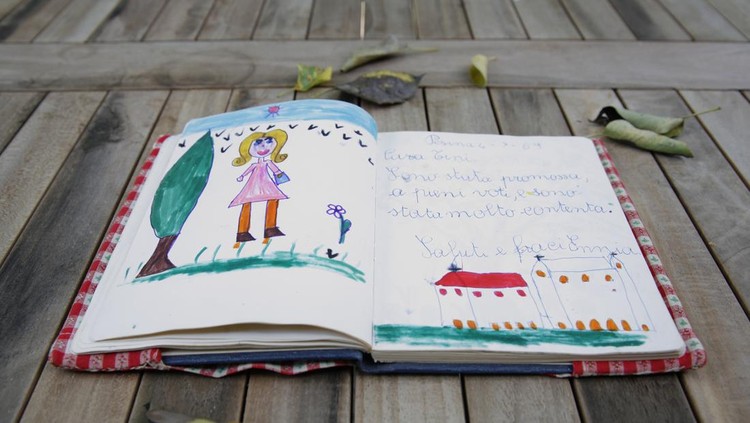 Cara Eeni
Sono stata promossa,
a pieni voti, e sono
stata molto contenta.
Saluti e baci